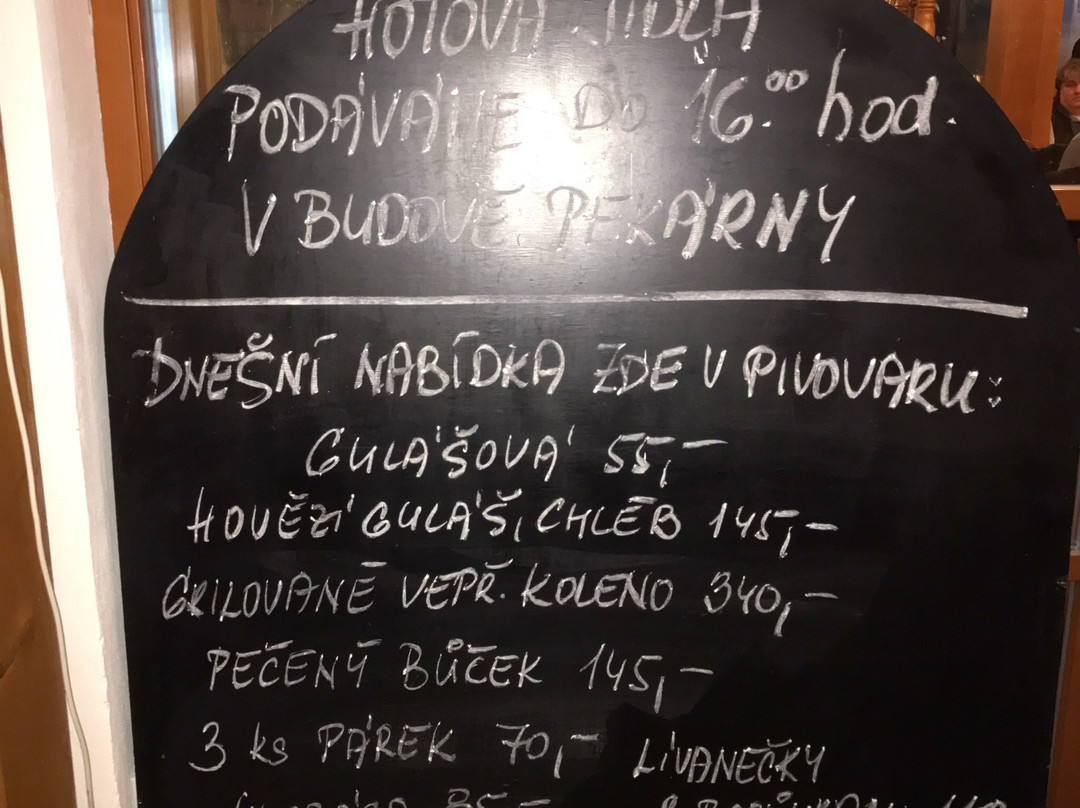 HOTOVÁ JÍDLA
PODÁVÁME DO 16.00 hod.
V BUDOVĚ PEKÁRNY
DNEŠNÍ NABÍDKA ZDE V PIVOVARU:
GULÁŠOVÁ 55,-
HOVĚZÍ GULÁŠ, CHLÉB 145,-
GRILOVANÉ VEPŘ. KOLENO 340,-
PEČENÝ BŮČEK 145,-
3 ks PÁREK 70,-
LÍVANEČKY
85,-